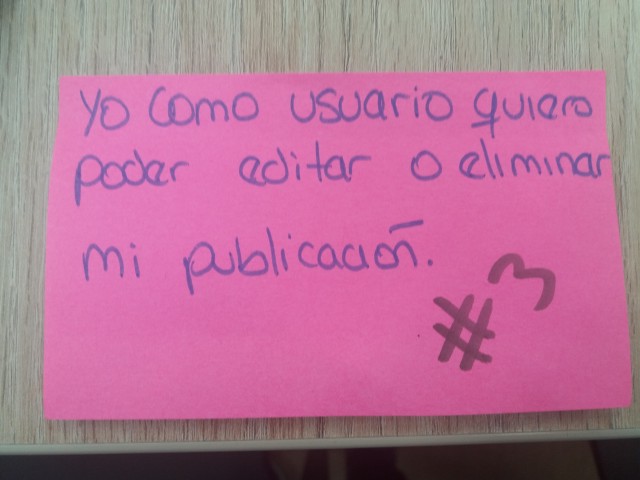 Yo como usuario quiero
poder editar o eliminar
mi publicación.
#3